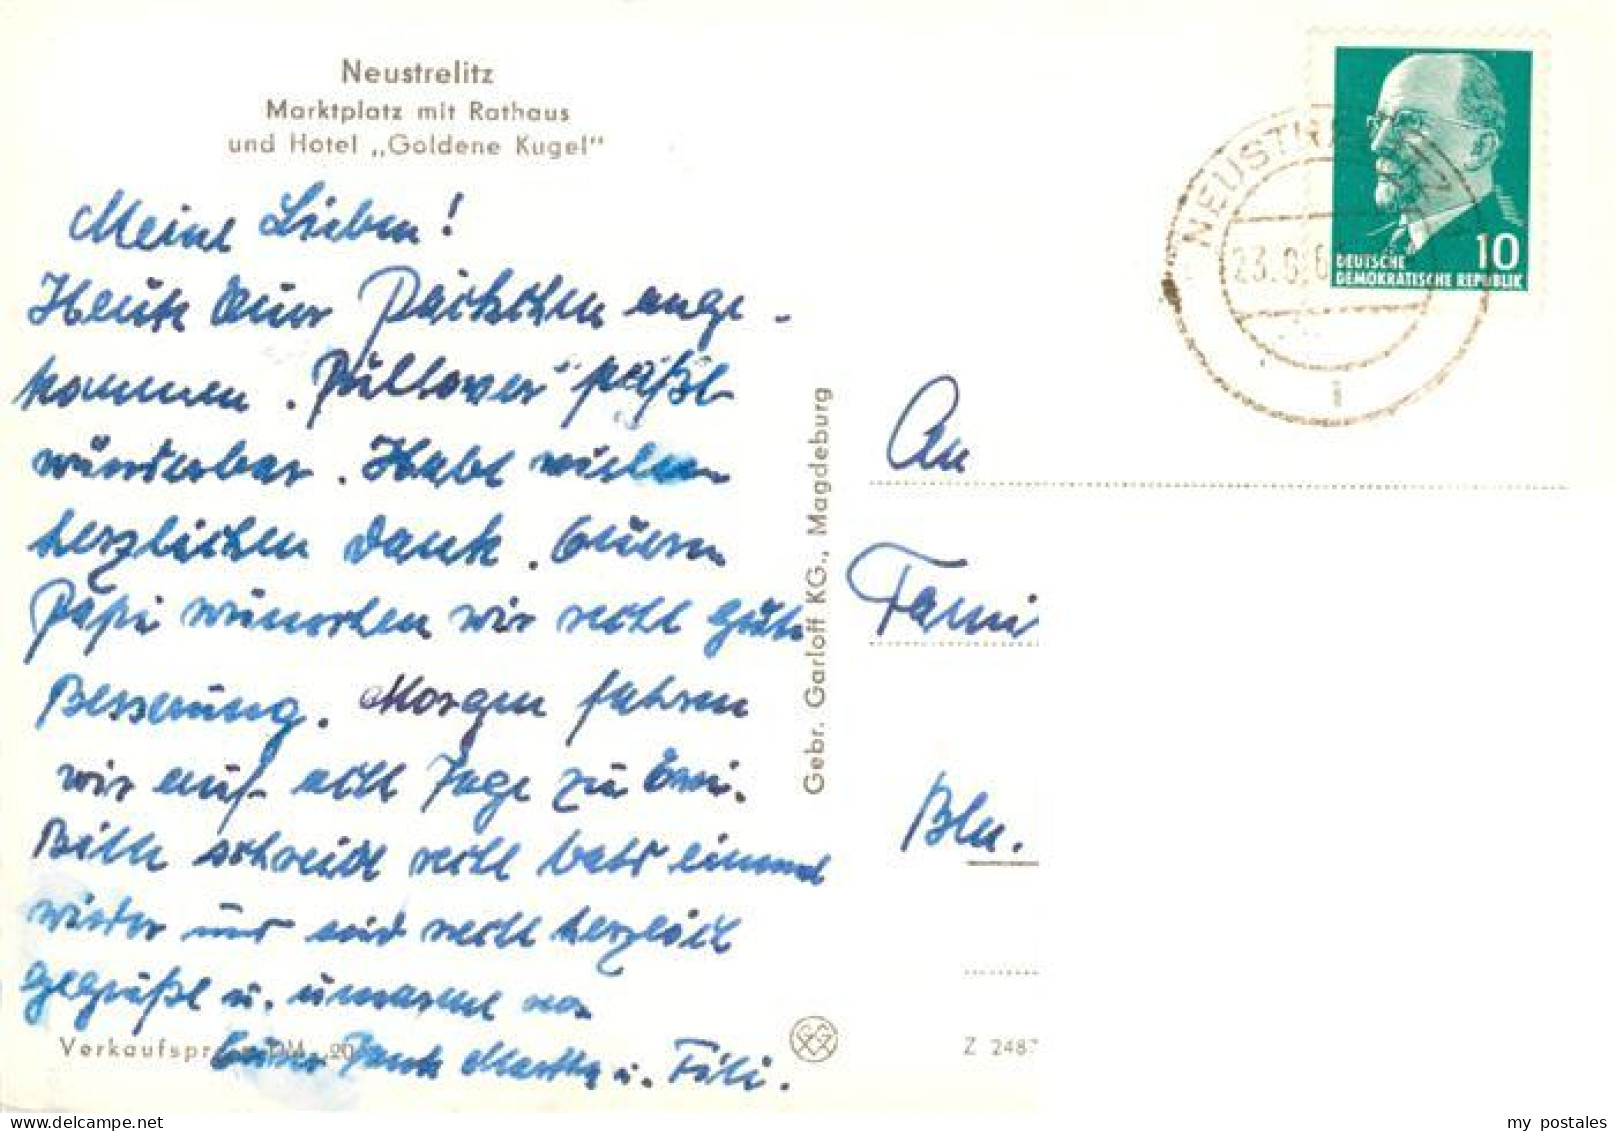 Neustrelitz
Marktplatz mit Rathaus
und Hotel „Goldene Kugel"
Meine Lieben!
Heute Euer Päckchen ange-
kommen. „Pullover" paßt
wunderbar. Habt vielen
herzlichen Dank. Eurem
Papi wünschen wir recht gute
Besserung. Morgen fahren
wir auf acht Tage zu
Bitte schreibt recht bald einmal
wieder und seid recht herzlich
gegrüßt u. umarmt von
Eurer Tante Martha u.
Verkaufspr DM ,20
Gebr. Garloff KG., Magdeburg
DEUTSCHE
DEMOKRATISCHE REPUBLIK
10
An
Fami
Bln.
Z 248
my postales